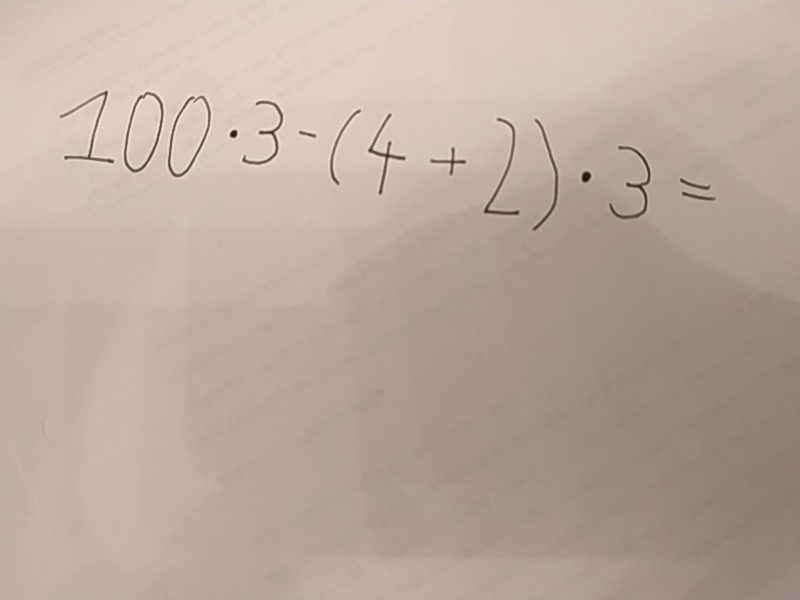 100·3-(4+2)·3=